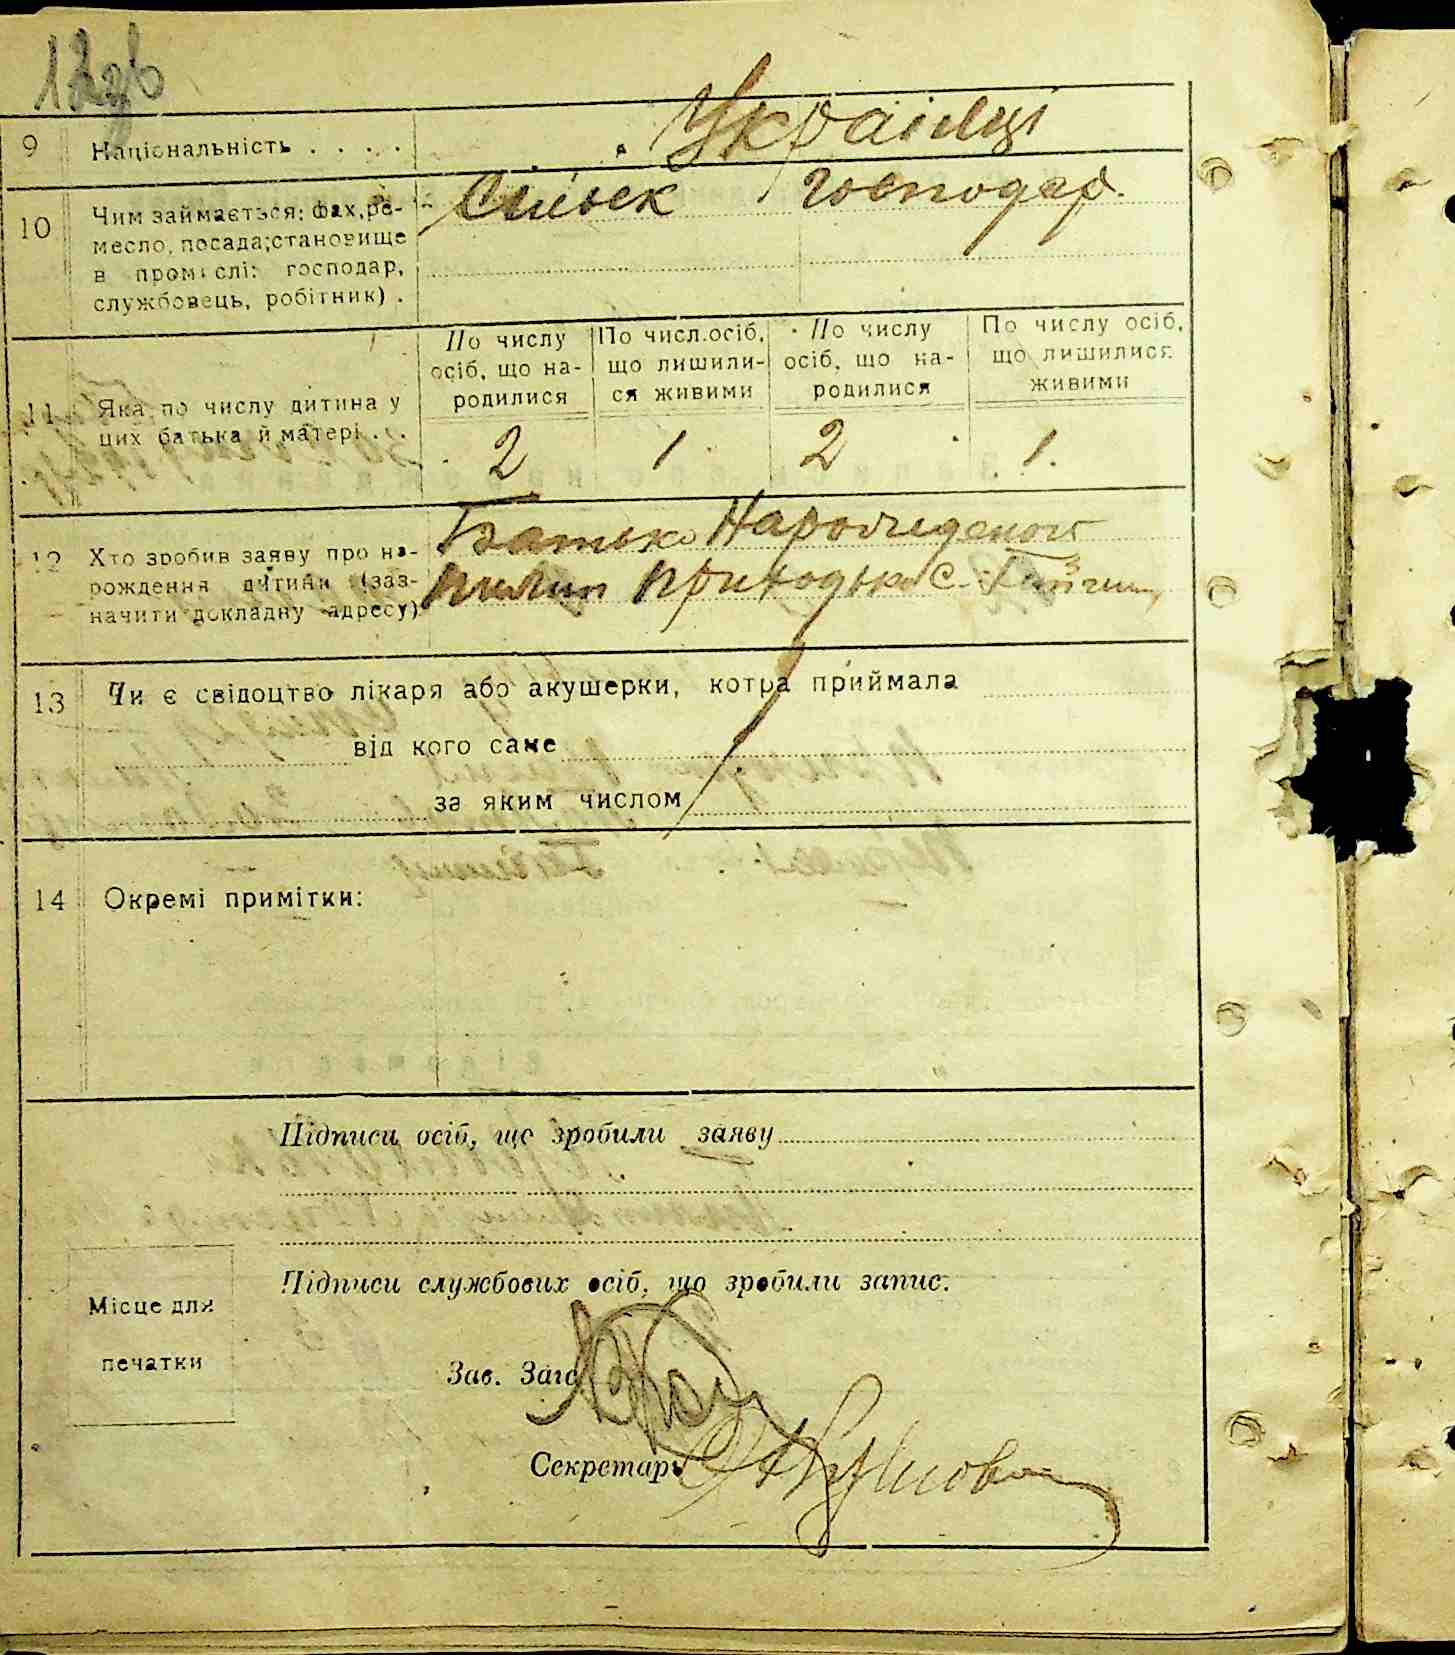 9 Національність . . . . Українці
10 Чим займається: фах, ре- Сільск господар.
месло, посада; становище
в промислі: господар,
службовець, робітник) .
По числу осіб, що на- родилися
По числ. осіб, що лишили- ся живими
По числу осіб, що на- родилися
По числу осіб, що лишилися живими
11 Яка по числу дитина у
цих батька й матері . . 2 1 2 1.
12 Хто зробив заяву про на- Батько
рождення дитини (заз- Пилип Приходько с.
начити докладну адресу)
13 Чи є свідоцтво лікаря або акушерки, котра приймала
від кого саме
за яким числом
14 Окремі примітки:
Підписи осіб, що зробили заяву
Підписи службових осіб, що зробили запис:
Місце для
печатки
Зав. Загс
Секретарь